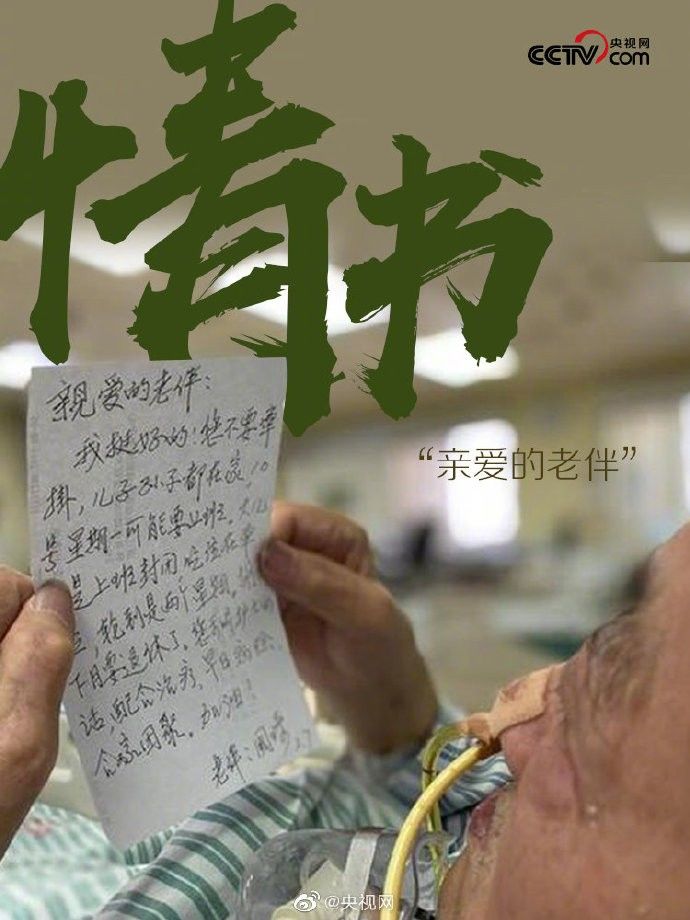 CCTV.com 央视网
情书
“亲爱的老伴”
親爱的老伴：
我挺好的！您不要牵
掛，儿子孙子都在家，10
号星期一可能要上班。大
是上班封闭吃住在单
轮制是两个星期。
下月要退休了。您
话，配合治疗，早日
合家团聚。加油！
老伴：
2.7
@央视网